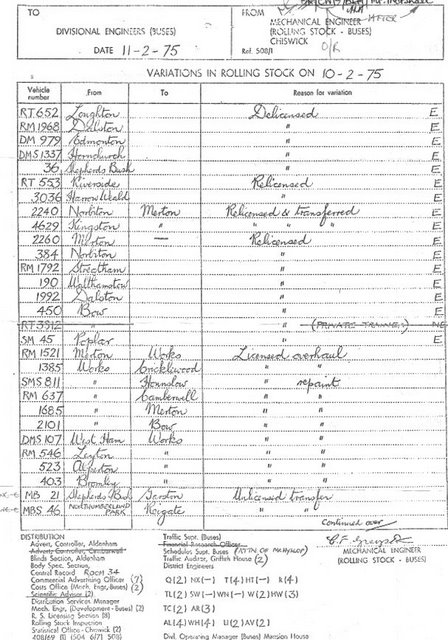 TO
FROM
DIVISIONAL ENGINEERS (BUSES)
MECHANICAL ENGINEER
(ROLLING STOCK - BUSES)
CHISWICK
DATE 11-2-75
Ref. 508/1
VARIATIONS IN ROLLING STOCK ON 10-2-75
Vehicle number From To Reason for variation
RT 652 Loughton Delicensed E
RM 1968 Dalston " E
DM 979 Edmonton " E
DMS 1337 Hornchurch " E
36 Shepherds Bush " E
RT 553 Riverside Relicensed E
3036 Harrow Weald " E
2240 Norbiton Merton Relicensed & transferred E
4629 Kingston " " " " E
2260 Merton — Relicensed E
384 Norbiton " E
RM 1792 Streatham " E
190 Walthamstow " E
1992 Dalston " E
450 Bow " E
RT 3912 " (PRIVATE TRAINER)
SM 45 Poplar " E
RM 1521 Merton Works Licensed overhaul
1385 Works Cricklewood " "
SMS 811 " Hounslow " repaint
RM 637 " Camberwell " "
1685 " Merton " "
2101 " Bow " "
DMS 107 West Ham Works " "
RM 546 Leyton " " "
523 Alperton " " "
403 Bromley " " "
MB 21 Shepherds Bush Garston Unlicensed transfer
MBS 46 NORTHUMBERLAND PARK Reigate " "
Continued over
DISTRIBUTION
Advert. Controller, Aldenham
Advert. Controller, Camberwell
Blinds Section, Aldenham
Body Spec. Section,
Central Record ROOM 34
Commercial Advertising Officer (7)
Costs Office (Mech. Engr, Buses) (2)
Scientific Adviser (2)
Distribution Services Manager
Mech. Engr. (Development - Buses) (2)
R. S. Licensing Section (8)
Rolling Stock Inspection
Statistical Office - Chiswick (2)
Traffic Supt. (Buses)
Financial Research Officer
Schedules Supt. Buses
Traffic Auditor, Griffith House (2)
District Engineers
Q(2) NX(-) T(4) HT(-) R(4)
TL(2) SW(-) WN(-) W(2) HW(3)
TC(2) AR(3)
AL(14) WH(4) U(2) AV(2)
Divl. Operating Manager (Buses) Mansion House
MECHANICAL ENGINEER
(ROLLING STOCK - BUSES)